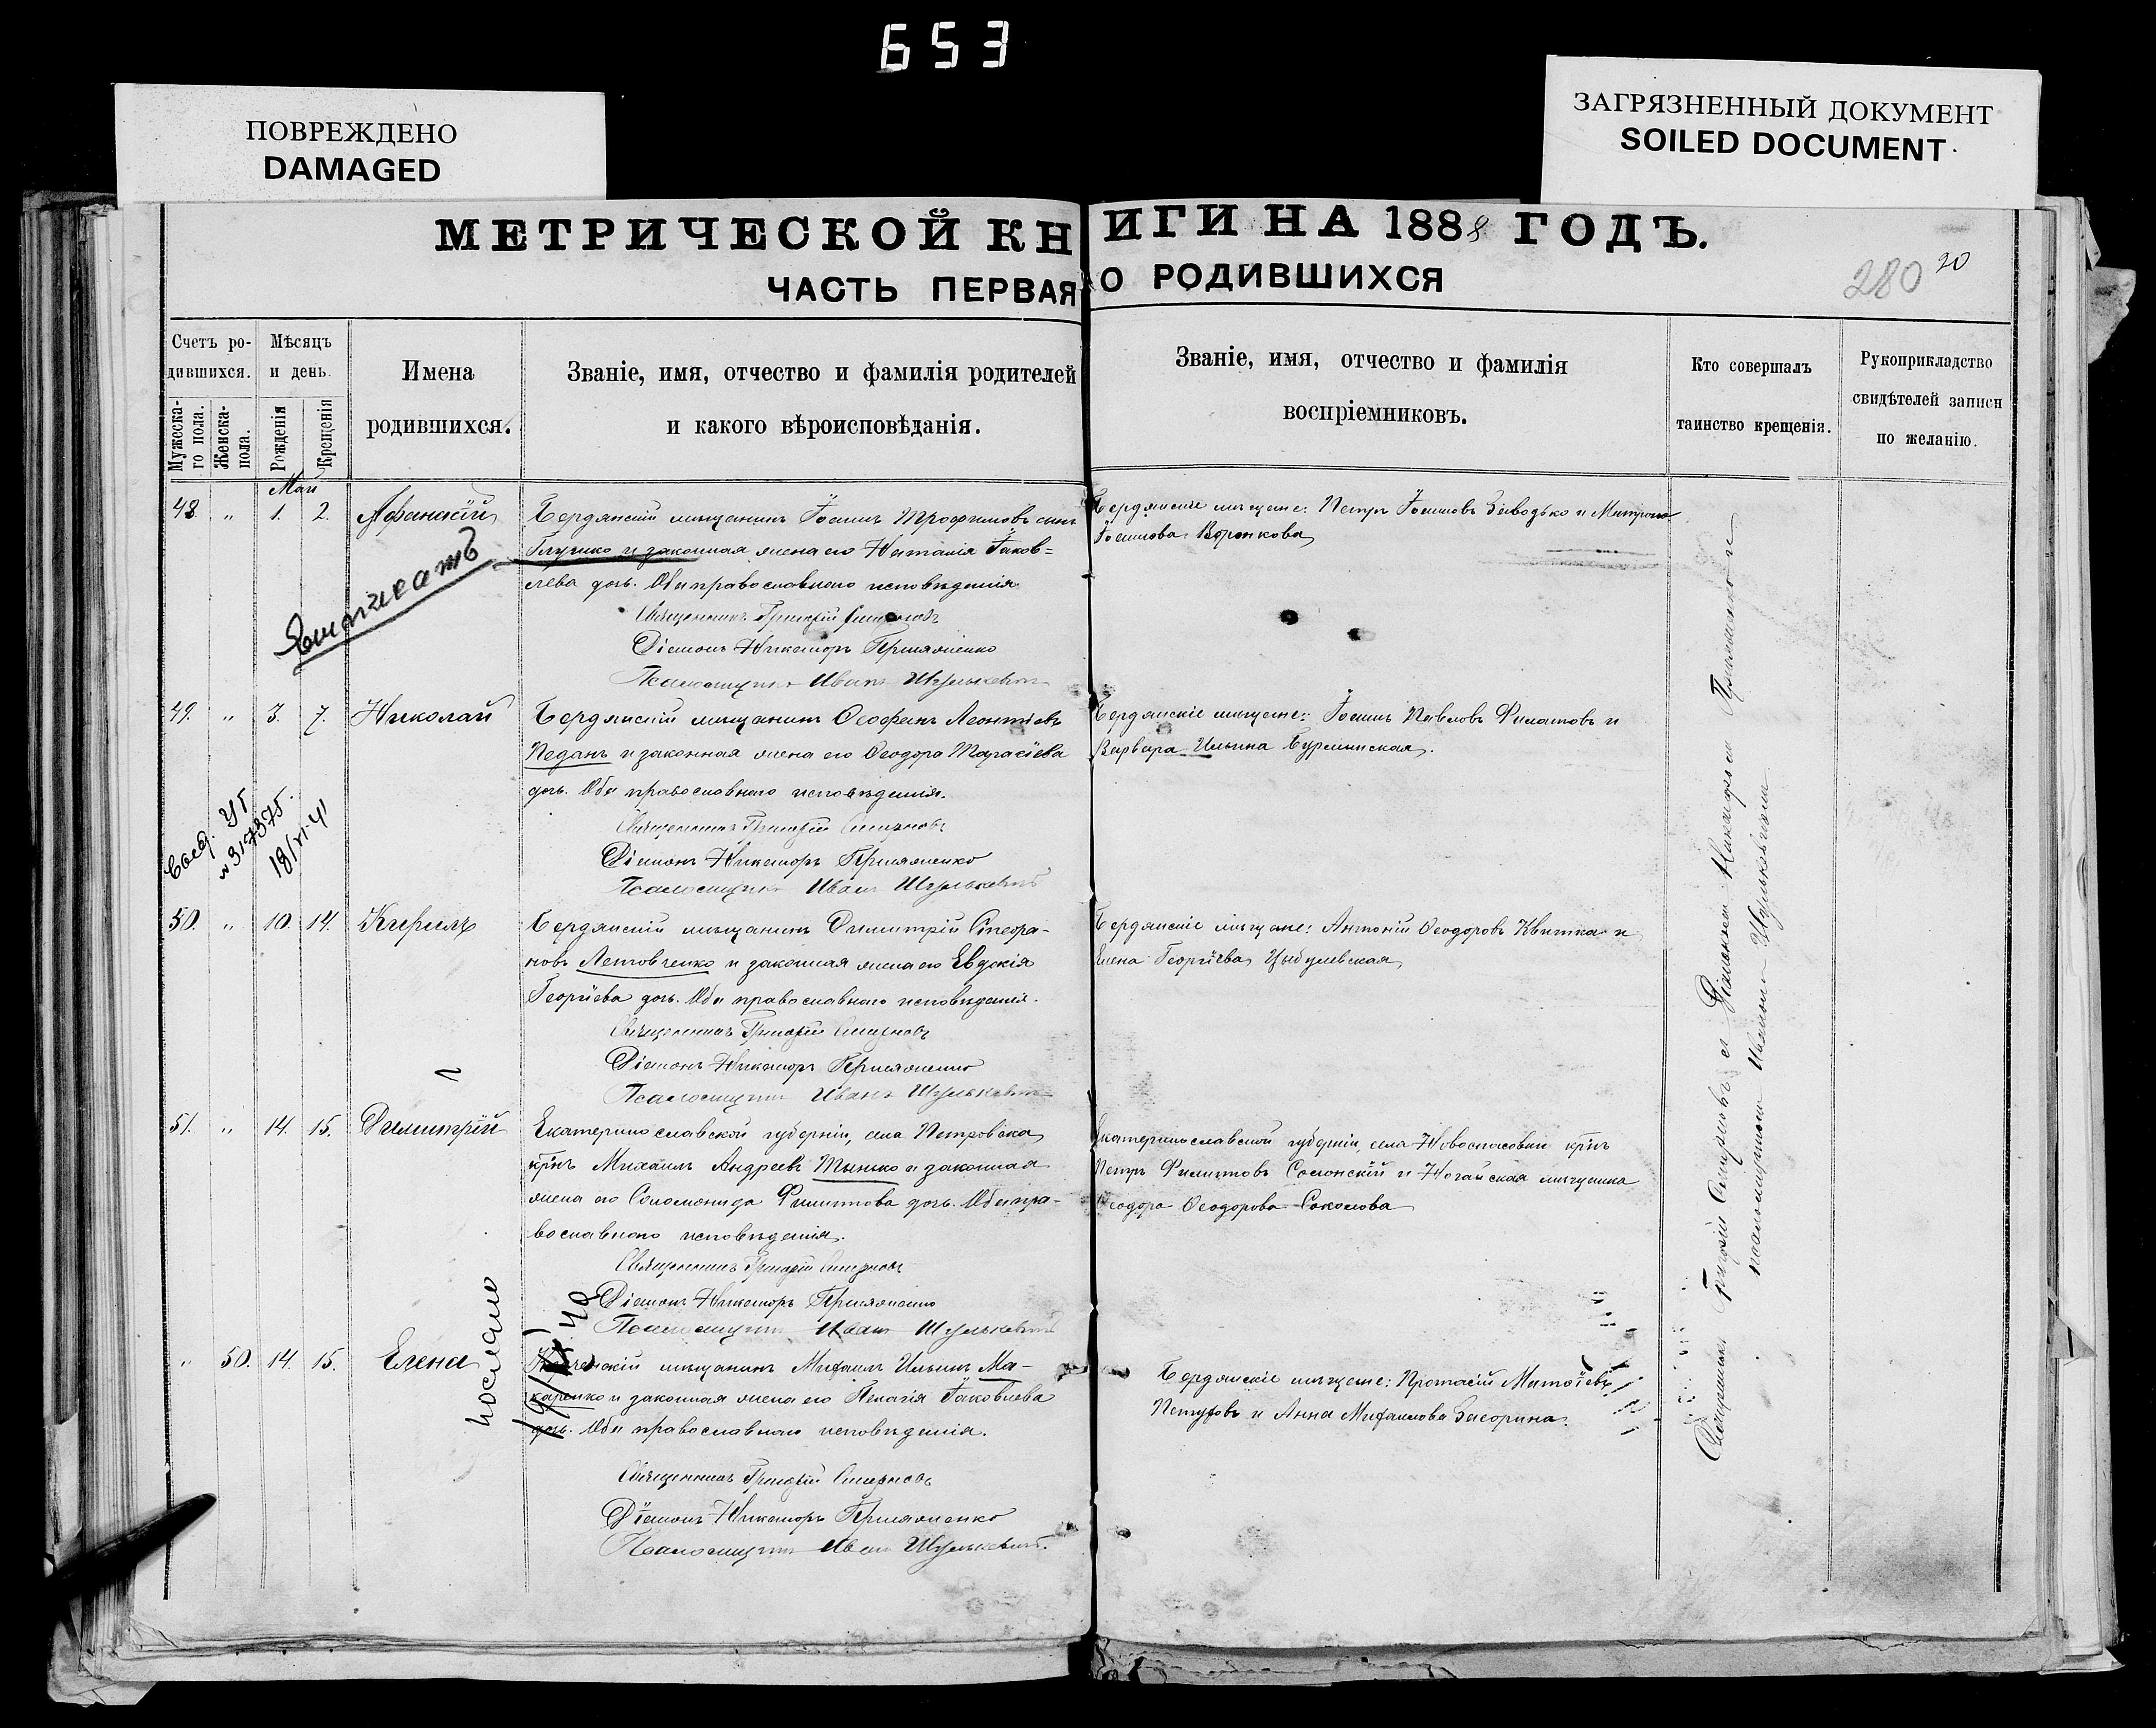 653
ПОВРЕЖДЕНО
DAMAGED
ЗАГРЯЗНЕННЫЙ ДОКУМЕНТ
SOILED DOCUMENT
МЕТРИЧЕСКОЙ КНИГИ НА 1888 ГОДЪ.
ЧАСТЬ ПЕРВАЯ О РОДИВШИХСЯ
280 20
Счетъ ро-
дившихся.
Мужеска-
го пола.
Женска-
пола.
Мѣсяцъ
и день.
Рожденія
Крещенія
Имена
родившихся.
Званіе, имя, отчество и фамилія родителей
и какого вѣроисповѣданія.
Званіе, имя, отчество и фамилія
воспріемниковъ.
Кто совершалъ
таинство крещенія.
Рукоприкладство
свидѣтелей записи
по желанію.
Май
48. " 1. 2. Афанасій
Бердянскій мѣщанинъ Іоаннъ Трофимовъ сынъ
и законная жена его Наталія Іаков-
лева дочь. Оба православнаго исповѣданія
Священникъ Григорій Смирновъ
Діаконъ Никаноръ
Псаломщикъ Иванъ Шулькевичъ
Бердянскіе мѣщане: Петръ Іоанновъ Заводько и
Іоаннова Воронкова
49. " 3. 7. Николай
Бердянскій мѣщанинъ Ѳеофанъ Леонтіевъ
Педанъ и законная жена его Ѳеодора Тарасіева
дочь. Оба православнаго исповѣданія.
Священникъ Григорій Смирновъ
Діаконъ Никаноръ
Псаломщикъ Иванъ Шулькевичъ
Бердянскіе мѣщане: Іоаннъ Павловъ Филатовъ и
Варвара Ильина
18/VI-41
50. " 10. 14. Кирилъ
Бердянскій мѣщанинъ Димитрій Стефа-
новъ Летовченко и законная жена его Евдокія
Георгіева дочь. Оба православнаго исповѣданія.
Священникъ Григорій Смирновъ
Діаконъ Никаноръ
Псаломщикъ Иванъ Шулькевичъ
Бердянскіе мѣщане: Антоній Ѳеодоровъ Квитка и
Елена Георгіева Цыбулевская
51. " 14. 15. Димитрій
Екатеринославской губерніи, села Петровска
кр̃нъ Михаилъ Андреевъ Тынько и законная
жена его Соломонида Филиппова дочь. Оба пра-
вославнаго исповѣданія.
Священникъ Григорій Смирновъ
Діаконъ Никаноръ
Псаломщикъ Иванъ Шулькевичъ
Екатеринославской губерніи, села Новоспасовки кр̃нъ
Петръ Филипповъ Солонскій и Ногайская мѣщанка
Ѳеодора Ѳеодорова Соколова
послано
" 50. 14. 15. Елена
мѣщанинъ Михаилъ Ильинъ Ма-
каренко и законная жена его Пелагія Іаковлева
дочь. Оба православнаго исповѣданія.
Священникъ Григорій Смирновъ
Діаконъ Никаноръ
Псаломщикъ Иванъ Шулькевичъ.
Бердянскіе мѣщане: Протасій
Петуховъ и Анна Михаилова Засорина.
Священникъ Григорій Смирновъ съ Діакономъ
псаломщикомъ Иваномъ Шулькевичемъ